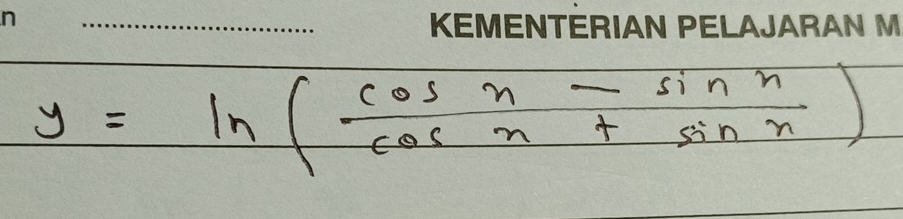 n ........................... KEMENTERIAN PELAJARAN M
y = ln ( cos x - sin x / cos x + sin x )